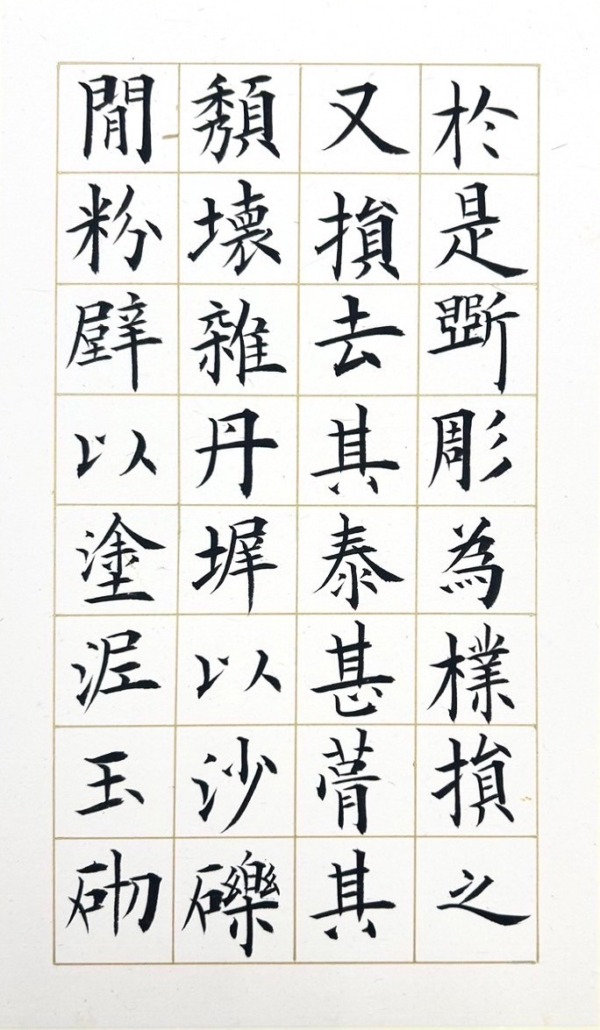 於是斵彫為樸損之
又損去其泰甚葺其
頹壞雜丹墀以沙礫
間粉壁以塗泥玉砌